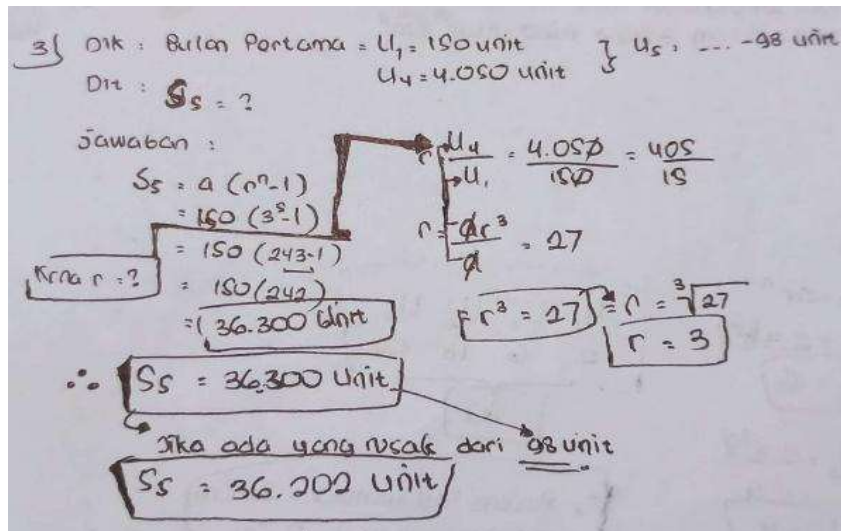 3) Dik : Bulan Pertama = U₁ = 150 unit } U₅ = .... -98 unit
U₄ = 4.050 unit
Dit : S₅ = ?
Jawaban :
S₅ = a (rⁿ-1)
= 150 (3⁵-1)
= 150 (243-1)
= 150 (242)
= 36.300 Unit
Krna r = ?
r U₄/U₁ = 4.050/150 = 405/15
r = ar³/a = 27
= r³ = 27 = r = ³√27
r = 3
∴ S₅ = 36.300 Unit
Jika ada yang rusak dari 98 unit
S₅ = 36.202 Unit